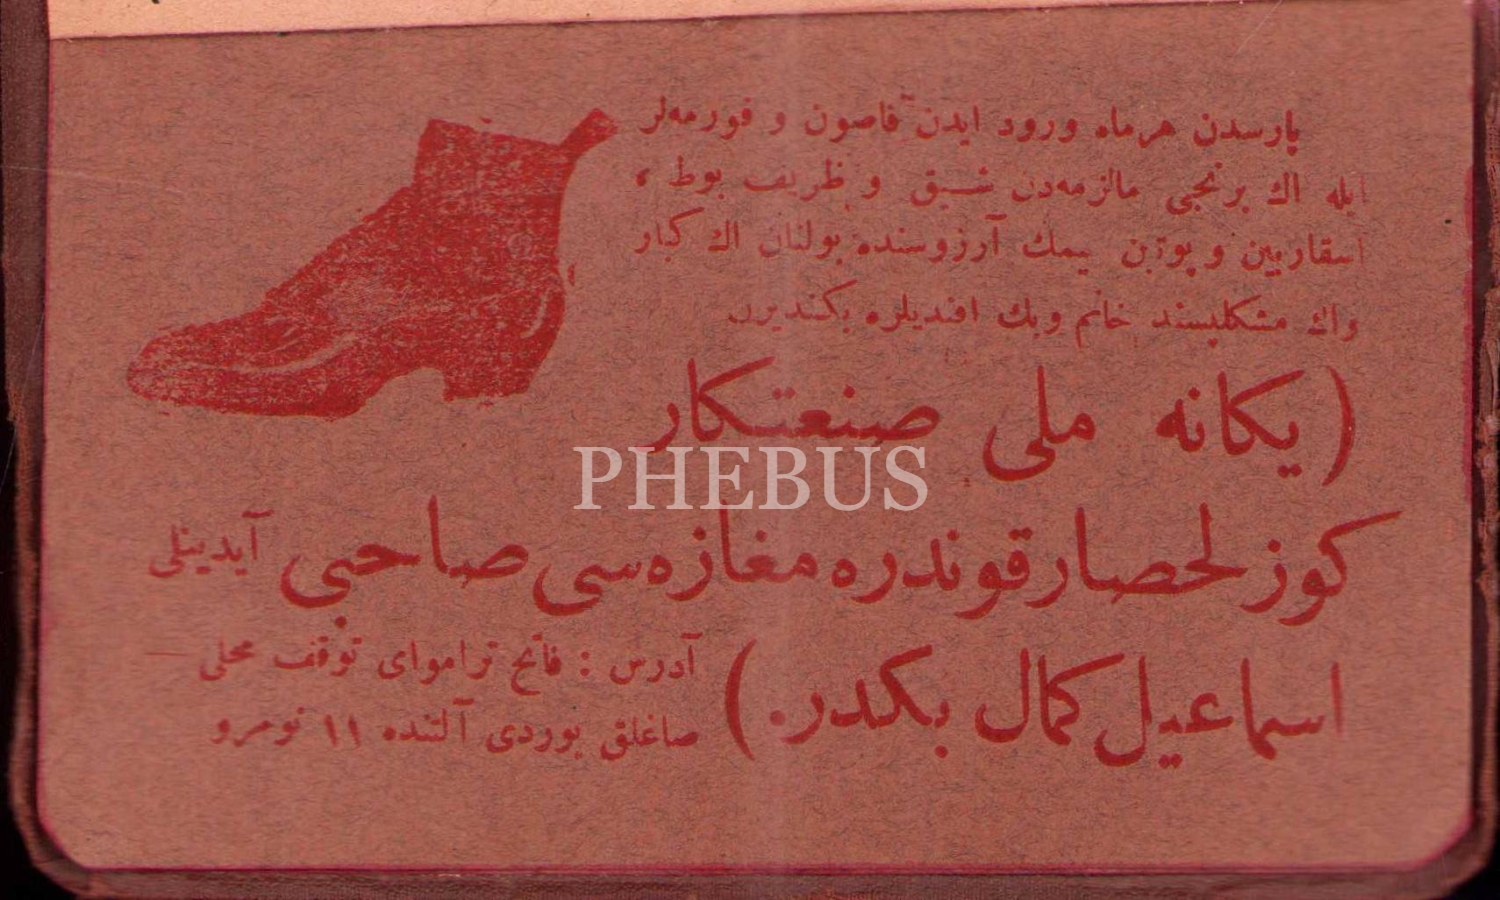 پارسدن هرماه ورود ايدن فاصون و فورمه‌لر
ايله اك برنجى مالزمه‌دن شيق و ظريف بوط ،
اسقارپين و پوتين ييمك آرزوسنده بولنان اك كبار
واك مشكلپسند خانم وبك افنديلره بكنديرن
( يكانه ملى صنعتكار
PHEBUS
كوزلحصار قوندره مغازه‌سى صاحبى آيدينلى
اسماعيل كمال بكدر. )
آدرس : فاتح تراموای توقف محلى —
صاغلق يوردى آلتنده ١١ نومرو